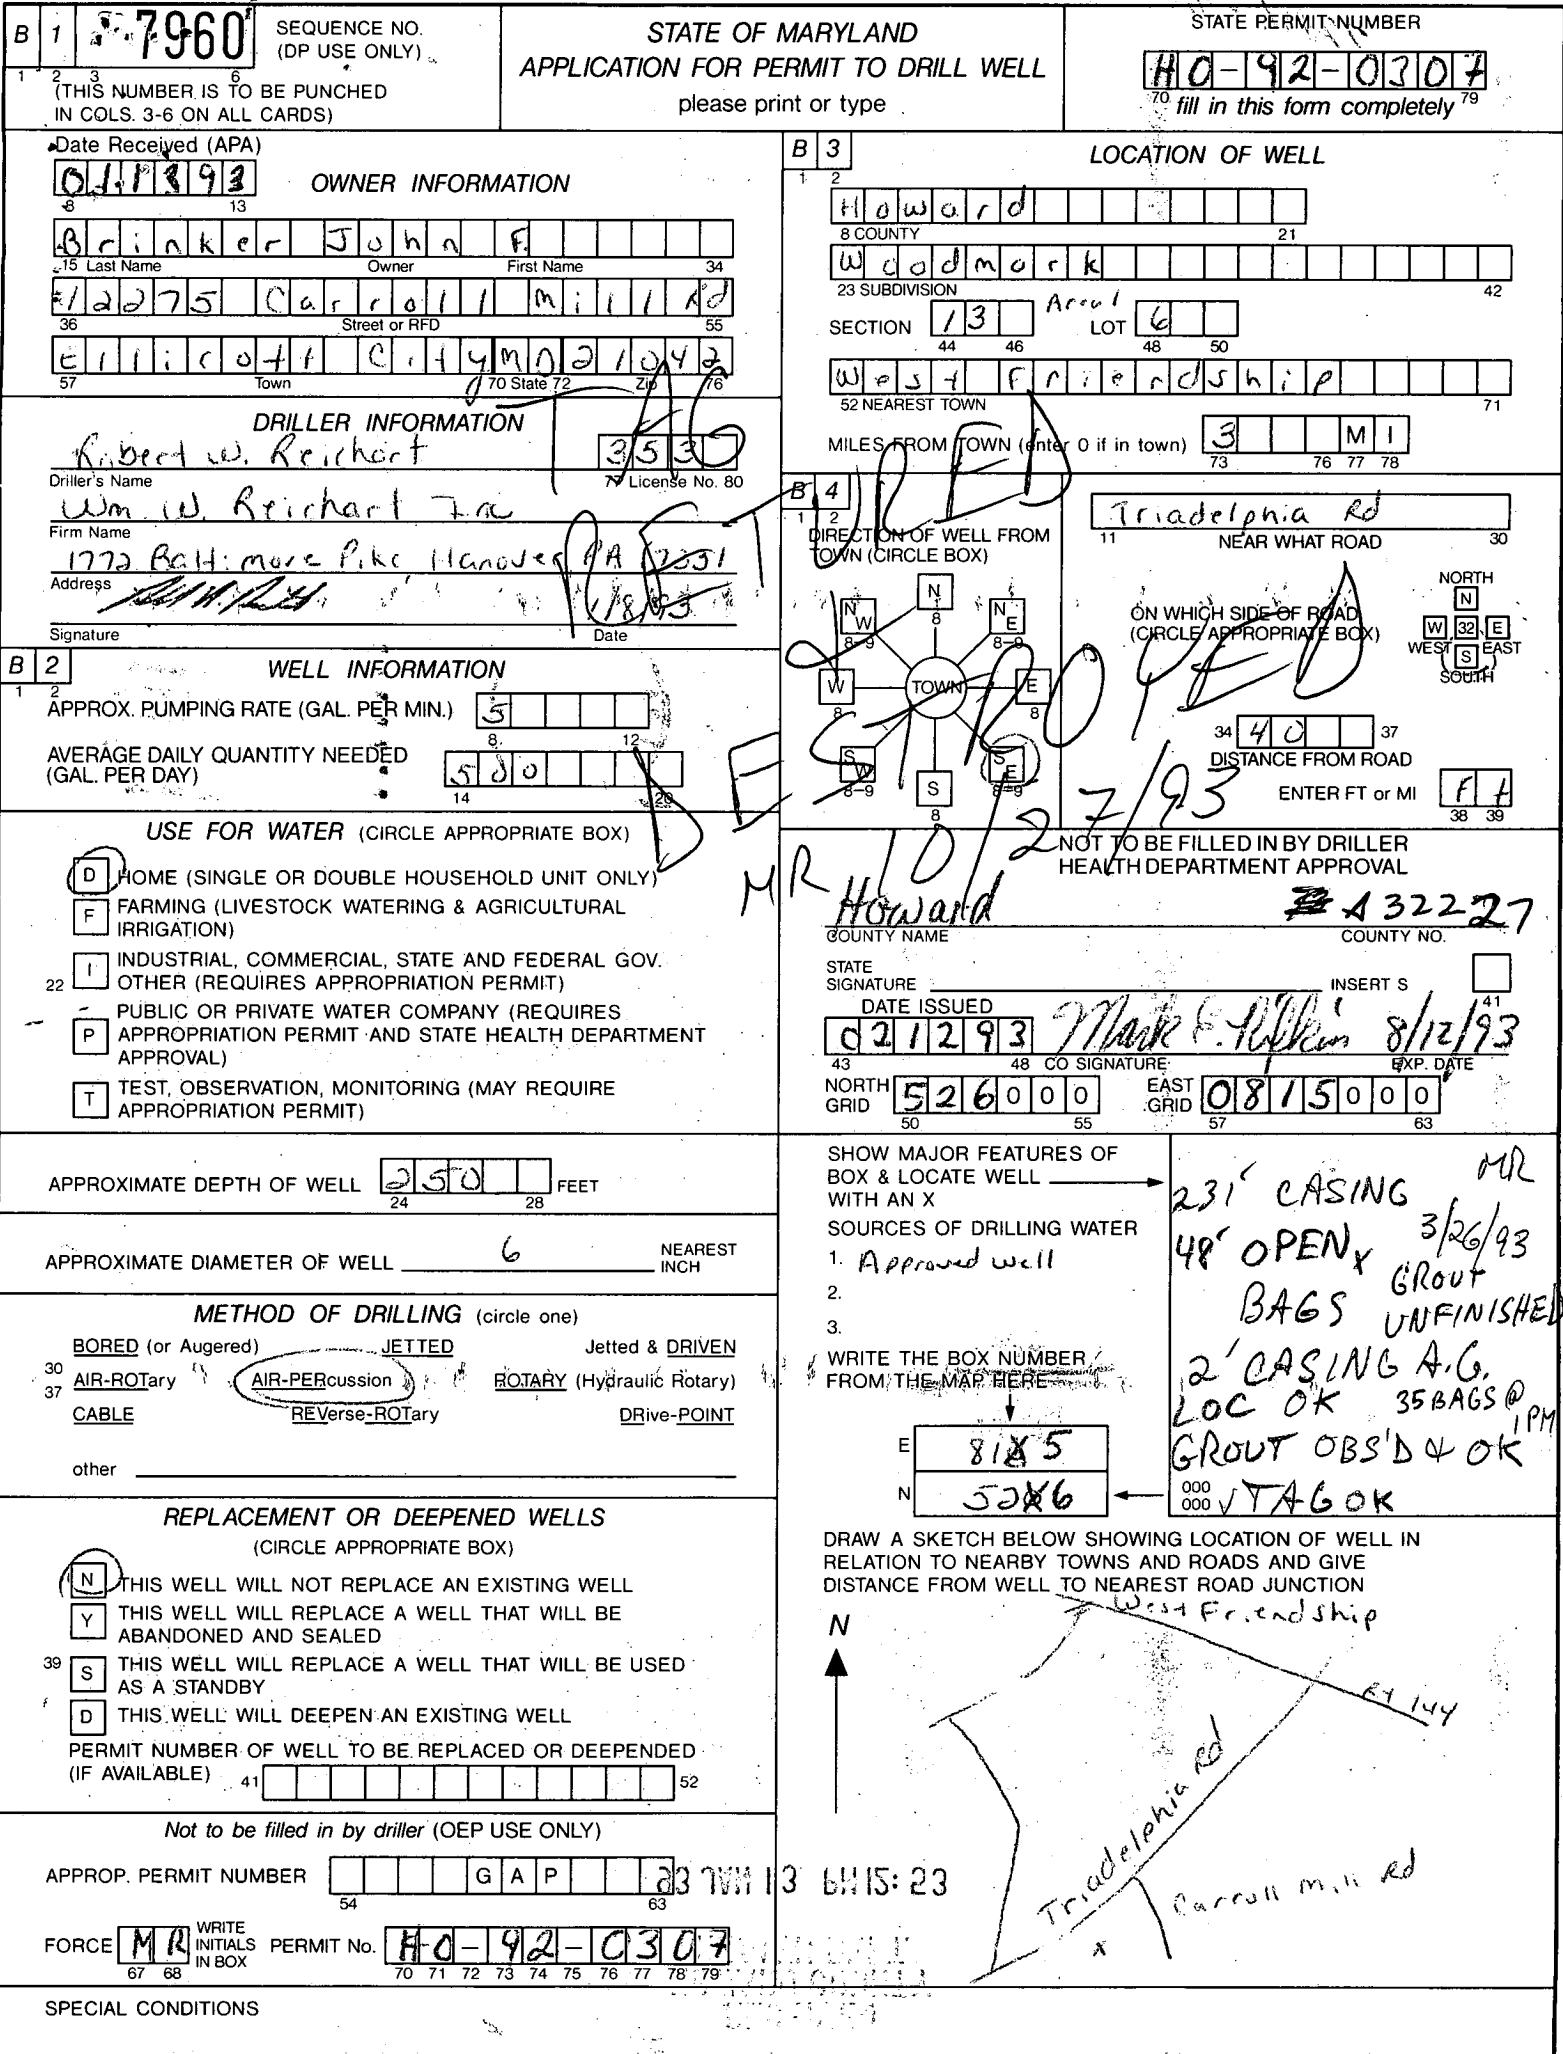 B 1 7960 SEQUENCE NO.
(DP USE ONLY)
1 2 3 6
(THIS NUMBER IS TO BE PUNCHED
IN COLS. 3-6 ON ALL CARDS)
STATE OF MARYLAND
APPLICATION FOR PERMIT TO DRILL WELL
please print or type
STATE PERMIT NUMBER
HO-92-0307
70 fill in this form completely 79
Date Received (APA)
011393
8 13
OWNER INFORMATION
Brinker John F.
15 Last Name Owner First Name 34
12275 Carroll Mill Rd
36 Street or RFD 55
Ellicott City MD 21042
57 Town 70 State 72 Zip 76
DRILLER INFORMATION
Robert W. Reichart 353
Driller's Name 77 License No. 80
Wm. W. Reichart Inc
Firm Name
1772 Baltimore Pike Hanover PA 17331
Address
1/8/93
Signature Date
TAG
RETURED
DESTROYED
MR 10/27/93
B 2 WELL INFORMATION
1 2
APPROX. PUMPING RATE (GAL. PER MIN.) 5
8 12
AVERAGE DAILY QUANTITY NEEDED
(GAL. PER DAY) 500
14 20
USE FOR WATER (CIRCLE APPROPRIATE BOX)
D HOME (SINGLE OR DOUBLE HOUSEHOLD UNIT ONLY)
F FARMING (LIVESTOCK WATERING & AGRICULTURAL
IRRIGATION)
22 I INDUSTRIAL, COMMERCIAL, STATE AND FEDERAL GOV.
OTHER (REQUIRES APPROPRIATION PERMIT)
P PUBLIC OR PRIVATE WATER COMPANY (REQUIRES
APPROPRIATION PERMIT AND STATE HEALTH DEPARTMENT
APPROVAL)
T TEST, OBSERVATION, MONITORING (MAY REQUIRE
APPROPRIATION PERMIT)
APPROXIMATE DEPTH OF WELL 250 FEET
24 28
APPROXIMATE DIAMETER OF WELL 6 NEAREST
INCH
METHOD OF DRILLING (circle one)
BORED (or Augered) JETTED Jetted & DRIVEN
30
37 AIR-ROTary AIR-PERcussion ROTARY (Hydraulic Rotary)
CABLE REVerse-ROTary DRive-POINT
other
REPLACEMENT OR DEEPENED WELLS
(CIRCLE APPROPRIATE BOX)
N THIS WELL WILL NOT REPLACE AN EXISTING WELL
Y THIS WELL WILL REPLACE A WELL THAT WILL BE
ABANDONED AND SEALED
39 S THIS WELL WILL REPLACE A WELL THAT WILL BE USED
AS A STANDBY
D THIS WELL WILL DEEPEN AN EXISTING WELL
PERMIT NUMBER OF WELL TO BE REPLACED OR DEEPENDED
(IF AVAILABLE) 41 52
Not to be filled in by driller (OEP USE ONLY)
APPROP. PERMIT NUMBER GAP
54 63
FORCE MR WRITE
INITIALS
IN BOX PERMIT No. HO-92-0307
67 68 70 71 72 73 74 75 76 77 78 79
SPECIAL CONDITIONS
B 3 LOCATION OF WELL
1 2
Howard
8 COUNTY 21
Woodmark
23 SUBDIVISION 42
SECTION 13 LOT 6
44 46 48 50
West Friendship
52 NEAREST TOWN 71
MILES FROM TOWN (enter 0 if in town) 3 MI
73 76 77 78
B 4
1 2
DIRECTION OF WELL FROM
TOWN (CIRCLE BOX)
N 8
NW 8-9 NE 8-9
W 8 TOWN E 8
SW 8-9 SE 8-9
S 8
Triadelphia Rd
11 NEAR WHAT ROAD 30
ON WHICH SIDE OF ROAD
(CIRCLE APPROPRIATE BOX)
NORTH
N
W 32 E
WEST S EAST
SOUTH
34 40 37
DISTANCE FROM ROAD
ENTER FT or MI Ft
38 39
NOT TO BE FILLED IN BY DRILLER
HEALTH DEPARTMENT APPROVAL
Howard A32227
COUNTY NAME COUNTY NO.
STATE
SIGNATURE INSERT S
41
DATE ISSUED
021293 Mark E. Rifkin 8/12/93
43 48 CO SIGNATURE EXP. DATE
NORTH
GRID 526000 EAST
GRID 0815000
50 55 57 63
SHOW MAJOR FEATURES OF
BOX & LOCATE WELL
WITH AN X
SOURCES OF DRILLING WATER
1. Approved well
2.
3.
WRITE THE BOX NUMBER
FROM THE MAP HERE
E 815
N 526
MR
231' CASING
3/26/93
48' OPEN x
GROUT
BAGS UNFINISHED
2' CASING A.G.
LOC OK 35 BAGS @
1 PM
GROUT OBS'D & OK
000
000 √ TAG OK
DRAW A SKETCH BELOW SHOWING LOCATION OF WELL IN
RELATION TO NEARBY TOWNS AND ROADS AND GIVE
DISTANCE FROM WELL TO NEAREST ROAD JUNCTION
N
West Friendship
Rt 144
Triadelphia Rd
Carroll Mill Rd
x